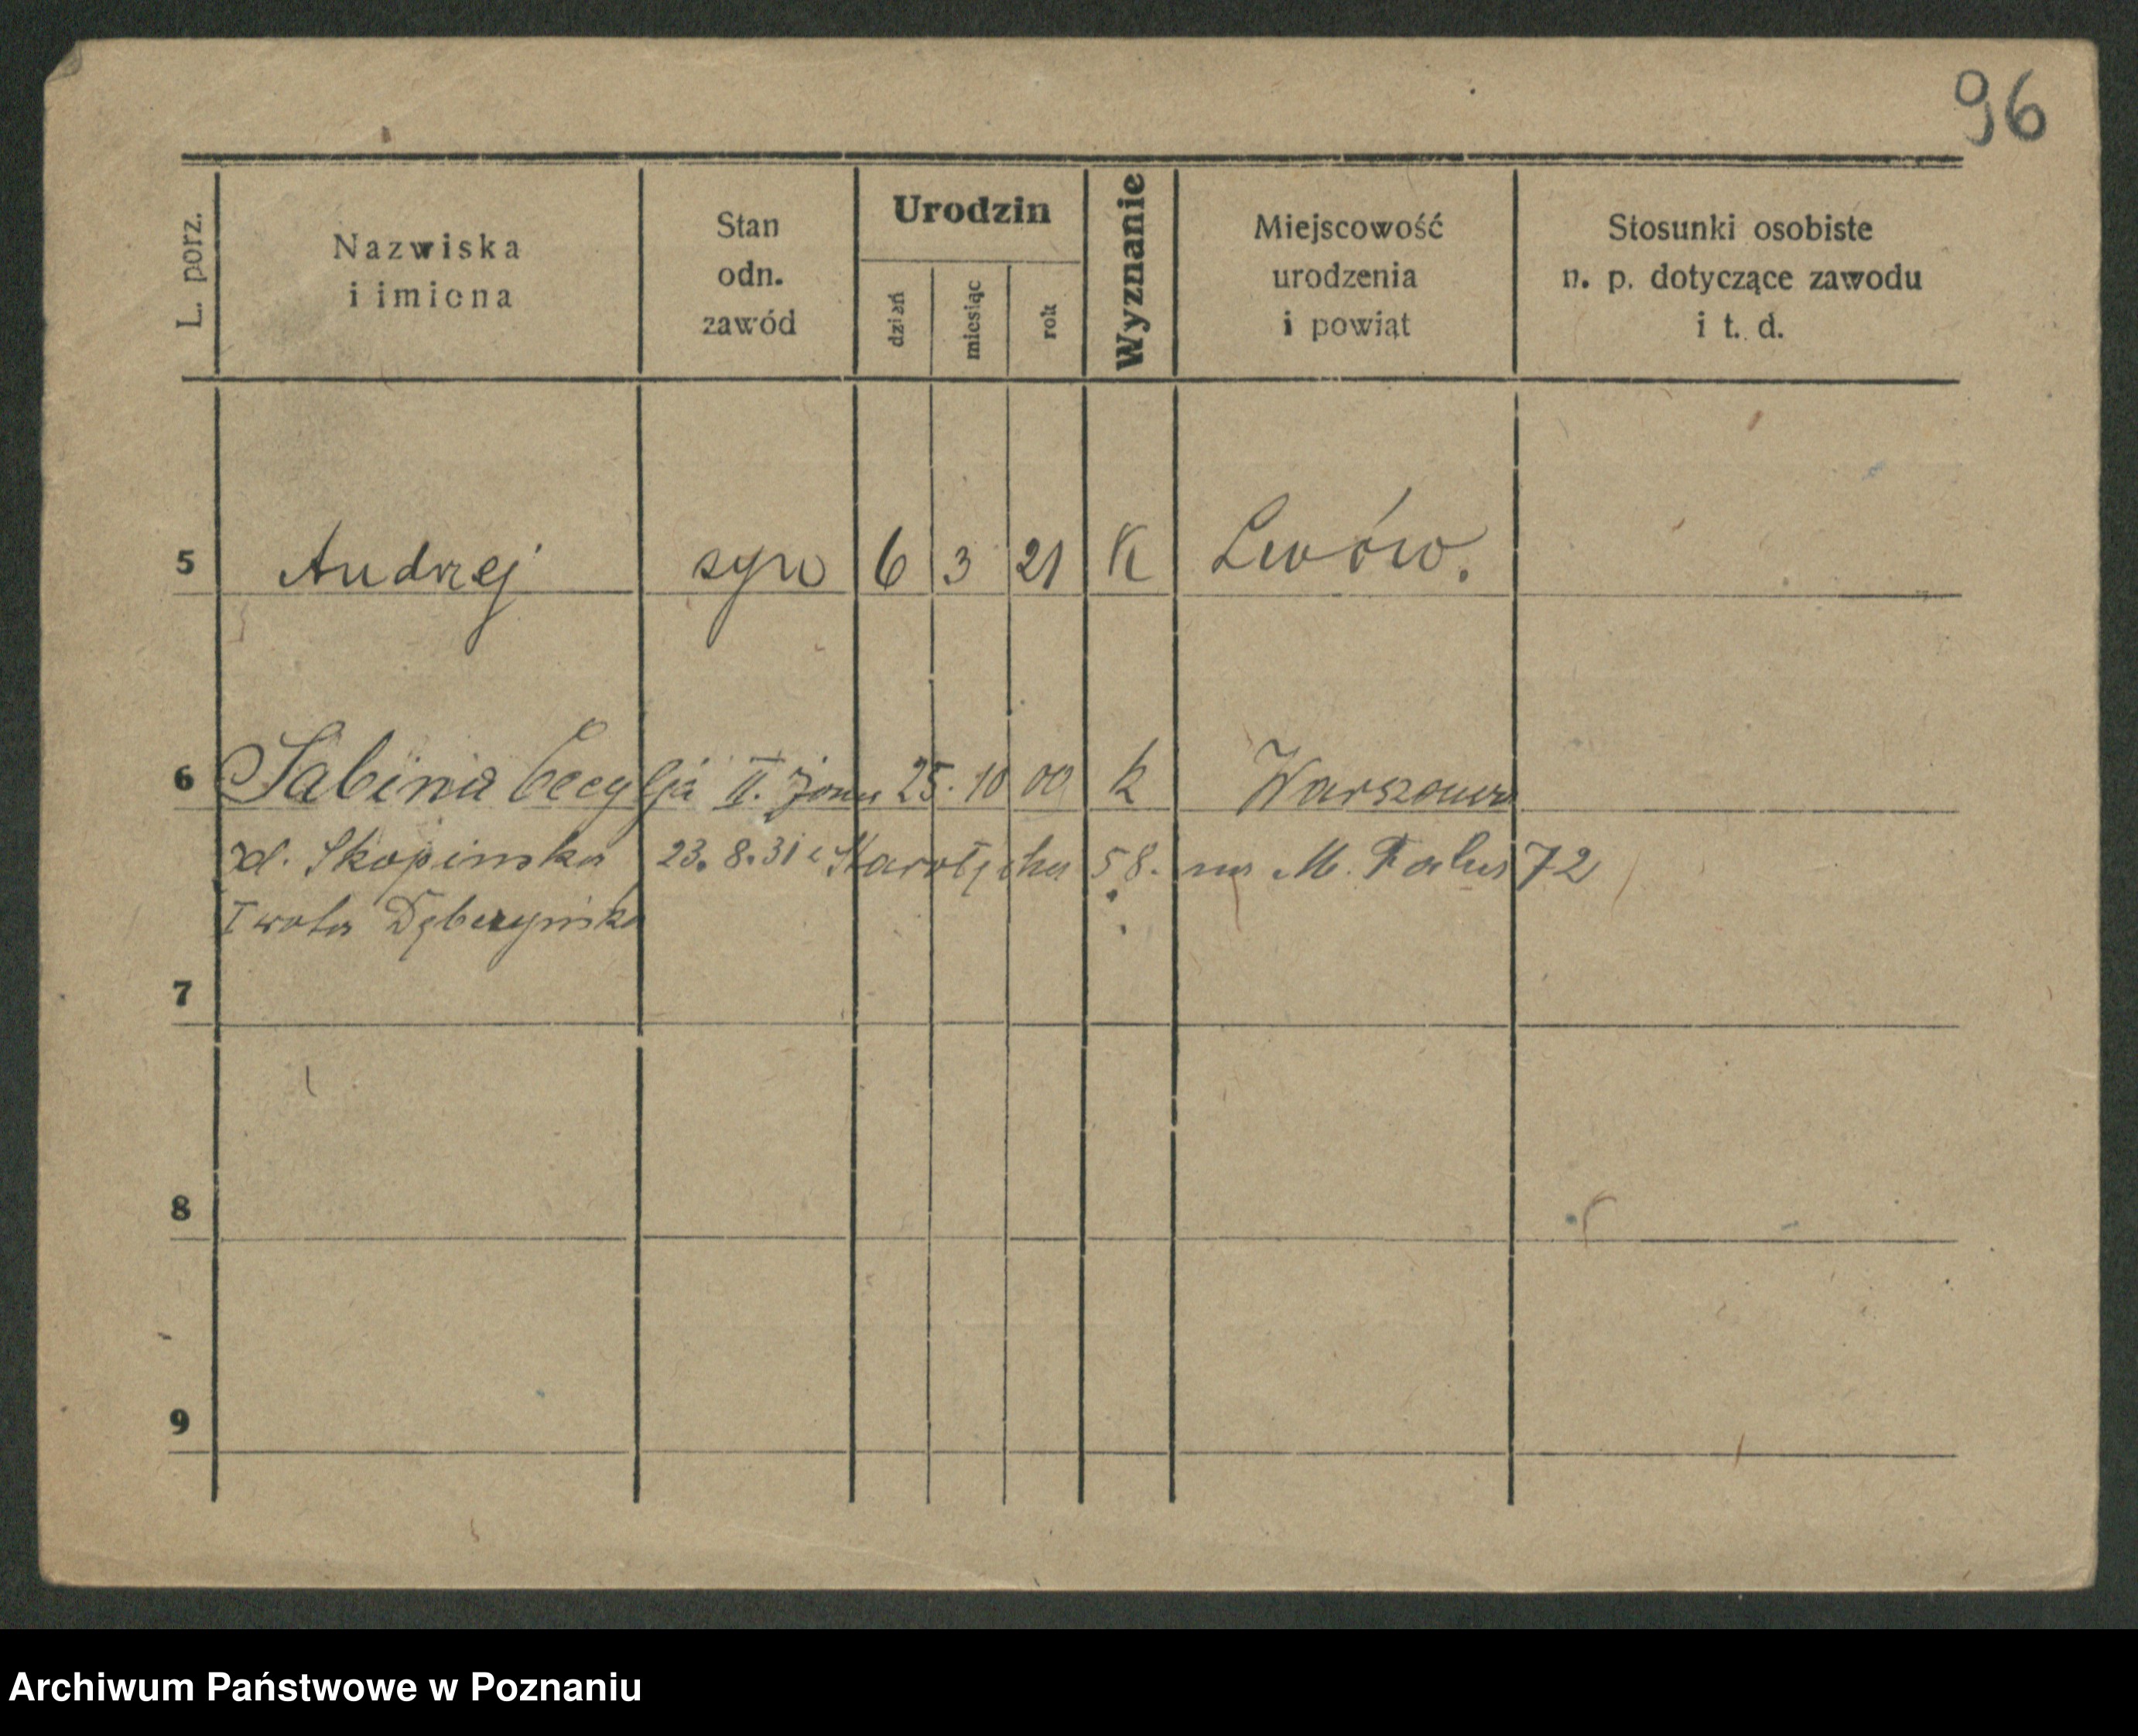 96
L. porz.
Nazwiska
i imiona
Stan
odn.
zawód
Urodzin
dzień
miesiąc
rok
Wyznanie
Miejscowość
urodzenia
i powiat
Stosunki osobiste
n. p. dotyczące zawodu
i t. d.
5 Andrzej syn 6 3 21 K Lwów.
6 Sabina Cecylja II. żona 25. 10 00 k Warszawa
zd. Skopinska 23. 8. 31 58. na M. 72
I wota
7
8
9
Archiwum Państwowe w Poznaniu